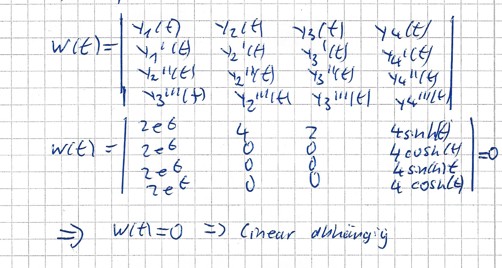 y₁(t) y₂(t) y₃(t) y₄(t)
W(t)= y₁'(t) y₂'(t) y₃'(t) y₄'(t)
y₂''(t) y₂''(t) y₃''(t) y₄''(t)
y₃'''(t) y₂'''(t) y₃'''(t) y₄'''(t)
2e^t 4 2 4sinh(t)
W(t)= 2e^t 0 0 4cosh(t) =0
2e^t 0 0 4sin(h)t
2e^t 0 0 4 cosh(t)
⇒ W(t)=0 ⇒ linear abhängig